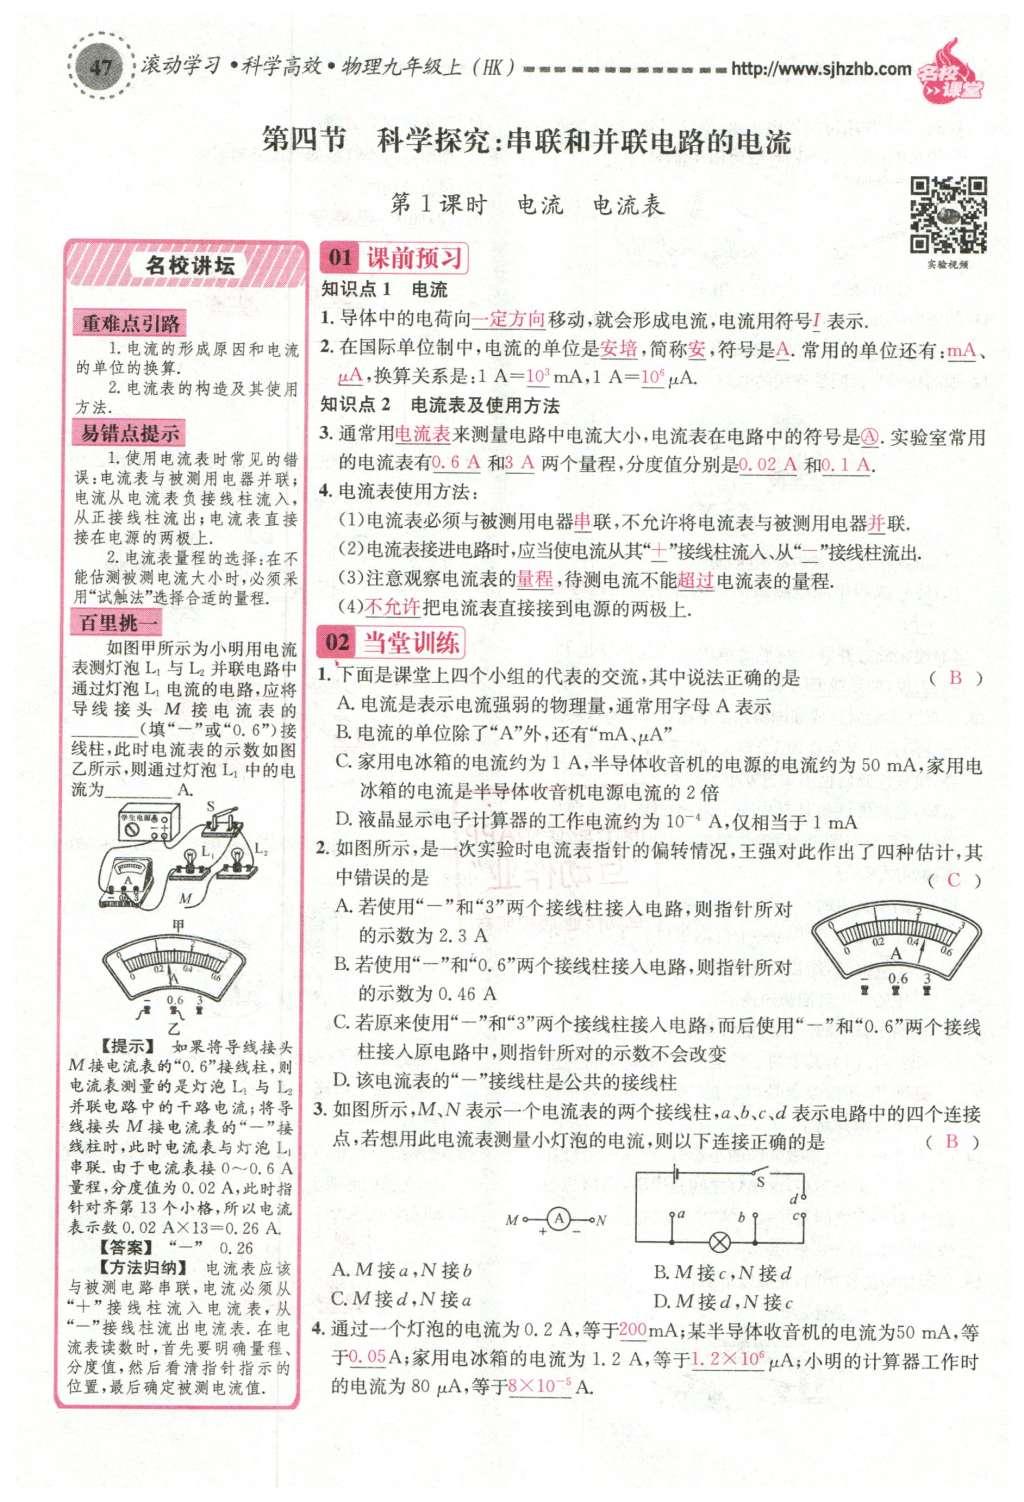 47 滚动学习·科学高效·物理九年级上(HK) http://www.sjhzhb.com 名校课堂
第四节 科学探究:串联和并联电路的电流
第1课时 电流 电流表
实验视频
名校讲坛
重难点引路
1.电流的形成原因和电流
的单位的换算.
2.电流表的构造及其使用
方法.
易错点提示
1.使用电流表时常见的错
误:电流表与被测用电器并联;
电流从电流表负接线柱流入,
从正接线柱流出;电流表直接
接在电源的两极上.
2.电流表量程的选择:在不
能估测被测电流大小时,必须采
用“试触法”选择合适的量程.
百里挑一
如图甲所示为小明用电流
表测灯泡 L₁ 与 L₂ 并联电路中
通过灯泡 L₁ 电流的电路,应将
导线接头 M 接电流表的
________(填“－”或“0.6”)接
线柱,此时电流表的示数如图
乙所示,则通过灯泡 L₁ 中的电
流为________ A.
学生电源 S
L₁ L₂
A
M
甲
0 1 2 3
0 0.2 0.4 0.6
A
－ 0.6 3
乙
【提示】 如果将导线接头
M接电流表的“0.6”接线柱,则
电流表测量的是灯泡 L₁ 与 L₂
并联电路中的干路电流;将导
线接头 M 接电流表的“－”接
线柱时,此时电流表与灯泡 L₁
串联.由于电流表接 0～0.6 A
量程,分度值为 0.02 A,此时指
针对齐第 13 个小格,所以电流
表示数 0.02 A×13=0.26 A.
【答案】 “－” 0.26
【方法归纳】 电流表应该
与被测电路串联,电流必须从
“＋”接线柱流入电流表,从
“－”接线柱流出电流表.在电
流表读数时,首先要明确量程、
分度值,然后看清指针指示的
位置,最后确定被测电流值.
01 课前预习
知识点1 电流
1.导体中的电荷向一定方向移动,就会形成电流,电流用符号I 表示.
2.在国际单位制中,电流的单位是安培,简称安,符号是A. 常用的单位还有:mA、
μA,换算关系是:1 A=10³mA,1 A=10⁶μA.
知识点2 电流表及使用方法
3.通常用电流表来测量电路中电流大小,电流表在电路中的符号是Ⓐ. 实验室常用
的电流表有0.6 A 和3 A 两个量程,分度值分别是0.02 A 和0.1 A.
4.电流表使用方法:
(1)电流表必须与被测用电器串联,不允许将电流表与被测用电器并联.
(2)电流表接进电路时,应当使电流从其“＋”接线柱流入、从“－”接线柱流出.
(3)注意观察电流表的量程,待测电流不能超过电流表的量程.
(4)不允许把电流表直接接到电源的两极上.
02 当堂训练
1.下面是课堂上四个小组的代表的交流,其中说法正确的是 ( B )
A.电流是表示电流强弱的物理量,通常用字母 A 表示
B.电流的单位除了“A”外,还有“mA、μA”
C.家用电冰箱的电流约为 1 A,半导体收音机的电源的电流约为 50 mA,家用电
冰箱的电流是半导体收音机电源电流的 2 倍
D.液晶显示电子计算器的工作电流约为 10⁻⁴ A,仅相当于 1 mA
2.如图所示,是一次实验时电流表指针的偏转情况,王强对此作出了四种估计,其
中错误的是 ( C )
A.若使用“－”和“3”两个接线柱接入电路,则指针所对
的示数为 2.3 A
B.若使用“－”和“0.6”两个接线柱接入电路,则指针所对
的示数为 0.46 A
0 1 2 3
0 0.2 0.4 0.6
A
－ 0.6 3
C.若原来使用“－”和“3”两个接线柱接入电路,而后使用“－”和“0.6”两个接线
柱接入原电路中,则指针所对的示数不会改变
D.该电流表的“－”接线柱是公共的接线柱
3.如图所示,M、N 表示一个电流表的两个接线柱,a、b、c、d 表示电路中的四个连接
点,若想用此电流表测量小灯泡的电流,则以下连接正确的是 ( B )
M A N
＋ －
S
d
a b c
A.M 接 a,N 接 b B.M 接 c,N 接 d
C.M 接 d,N 接 a D.M 接 d,N 接 c
4.通过一个灯泡的电流为 0.2 A,等于200mA;某半导体收音机的电流为50 mA,等
于0.05A;家用电冰箱的电流为 1.2 A,等于1.2×10⁶ μA;小明的计算器工作时
的电流为 80 μA,等于8×10⁻⁵ A.